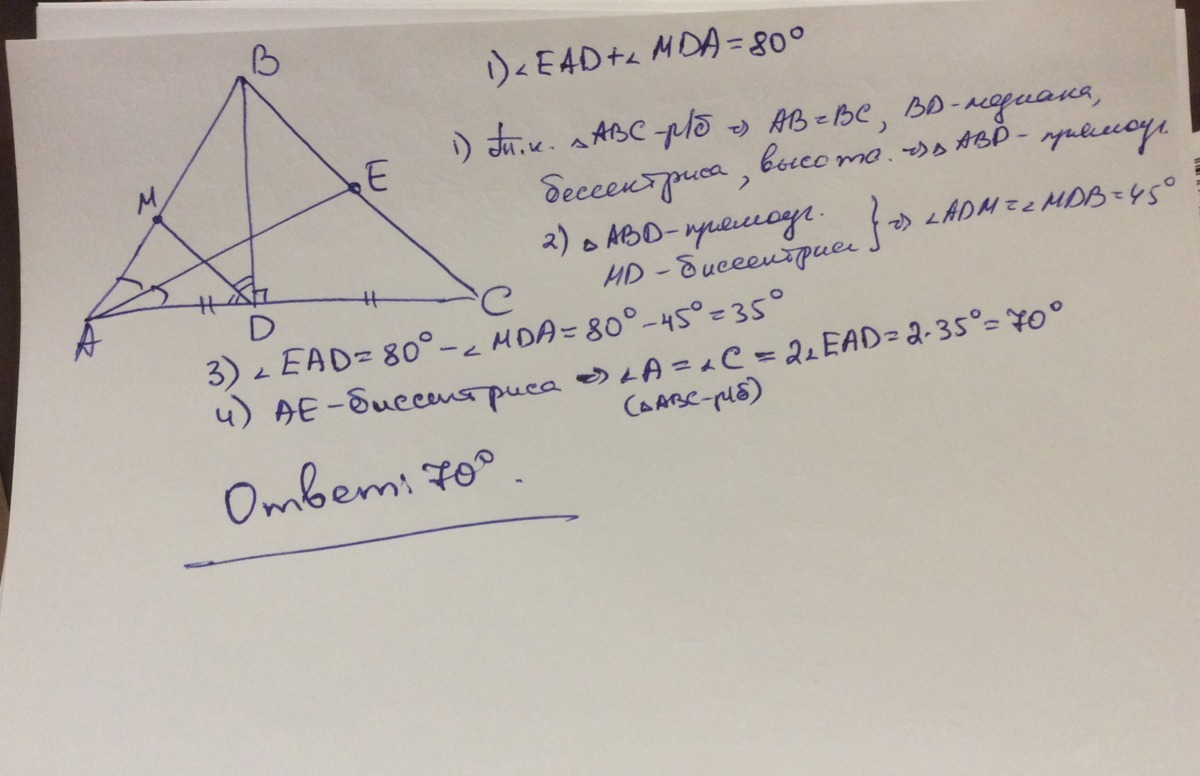 B
E
M
A
D
C
1) ∠EAD+∠MDA=80°
1) Т.к. △ABC-р/б ⇒ AB=BC, BD-медиана,
бессектриса, высота. ⇒ △ABD-прямоуг.
2) △ABD-прямоуг.
MD-биссектриса } ⇒ ∠ADM=∠MDB=45°
3) ∠EAD=80°-∠MDA=80°-45°=35°
4) AE-биссектриса ⇒ ∠A=∠C=2∠EAD=2·35°=70°
(△ABC-р/б)
Ответ: 70°.